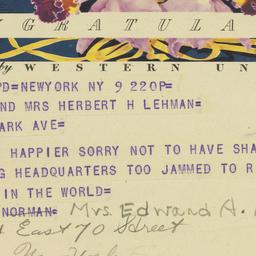 GRATULA
by WESTERN UN
PD=NEWYORK NY 9 220P=
ND MRS HERBERT H LEHMAN=
ARK AVE=
HAPPIER SORRY NOT TO HAVE SHA
G HEADQUARTERS TOO JAMMED TO R
IN THE WORLD=
NORMAN= Mrs. Edward A.
East 70 Street